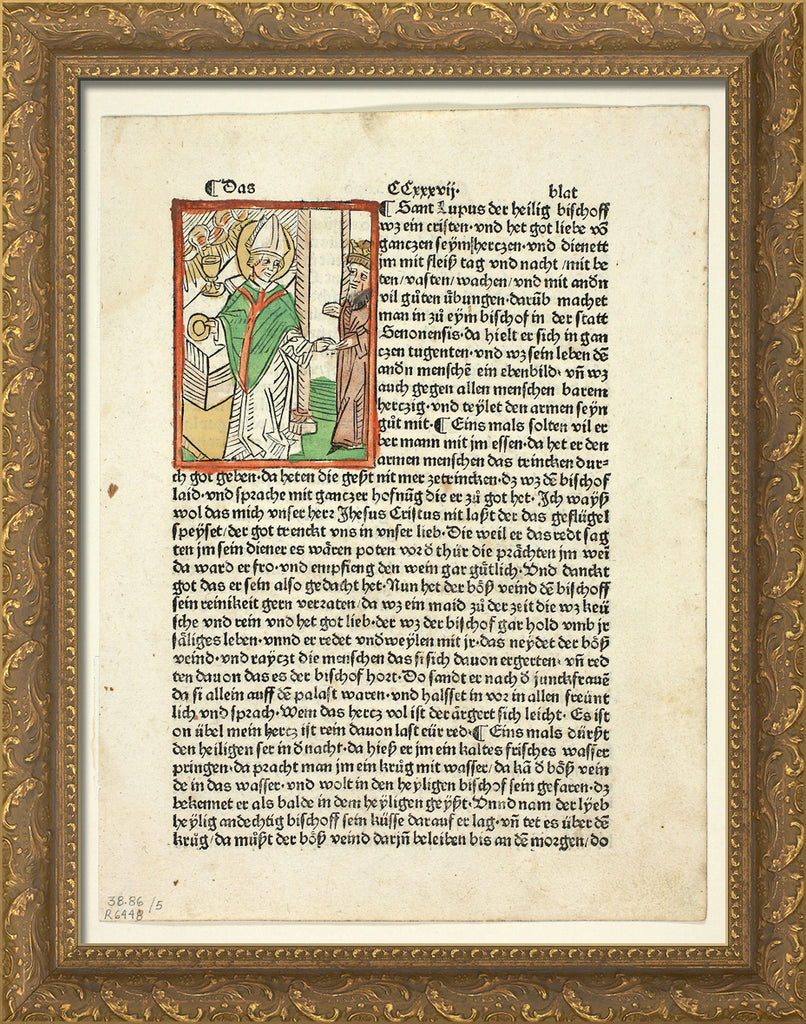 ¶ Das CCxxxvij. blat
¶ Sant Lupus der heilig bischoff
wz ein cristen·vnd het got liebe võ
ganczen seym herczen·vnd dienett
jm mit fleiß tag vnd nacht/mit be
ten/vasten/wachen/vnd mit andn
vil gůten übungen·darūb machet
man in zů eym bischof in der statt
Senonensis·da hielt er sich in gan
czen tugenten·vnd wz sein leben dē
andn menschē ein ebenbild·vñ wz
auch gegen allen menschen barem
herczig·vnd teÿlet den armen seÿn
gůt mit·¶ Eins mals solten vil er
ber mann mit jm essen·da het er den
armen menschen das trincken dur-
ch got geben·da heten die geßt nit mer zetrincken·dz wz dē bischof
laid·vnd sprache mit ganczer hofnūg die er zů got het·Ich waÿß
wol das mich vnser herr Jhesus Cristus nit laßt der das geflügel
speÿset/der got trenckt vns in vnser lieb·Die weil er das redt sag
ten jm sein diener es wären poten vor d̄ thür die prächten jm wein
da ward er fro·vnd empfieng den wein gar gůtlich·Vnd danckt
got das er sein also gedacht het·Nun het der böß veind dē bischoff
sein reinikeit gern verraten/da wz ein maid zů der zeit die wz keü
sche vnd rein vnd het got lieb·der wz der bischof gar hold vmb jr
säliges leben·vnnd er redet vndweÿlen mit jr·das neÿdet der böß
veind·vnd raÿczt die menschen das si sich dauon ergerten·vñ red
ten dauon das es der bischof hort·Do sandt er nach d̄ junckfrauē
da si allein auff dē palast waren·vnd halsset in vor in allen freünt
lich vnd sprach·Wem das hercz vol ist der ärgert sich leicht·Es ist
on übel mein hercz ist rein dauon last eür red·¶ Eins mals dürßt
den heiligen ser in d̄ nacht·da hieß er jm ein kaltes frisches wasser
pringen·da pracht man jm ein krůg mit wasser/da kā d̄ böß vein
de in das wasser·vnd wolt in den heÿligen bischof sein gefaren·dz
bekennet er als balde in dem heÿligen geÿßt·Vnnd nam der lÿeb
heÿlig andechtig bischoff sein küsse darauf er lag·vñ tet es über dē
krůg/da můßt der böß veind darjñ beleiben bis an dē morgen/do
38.86 /5
R6448